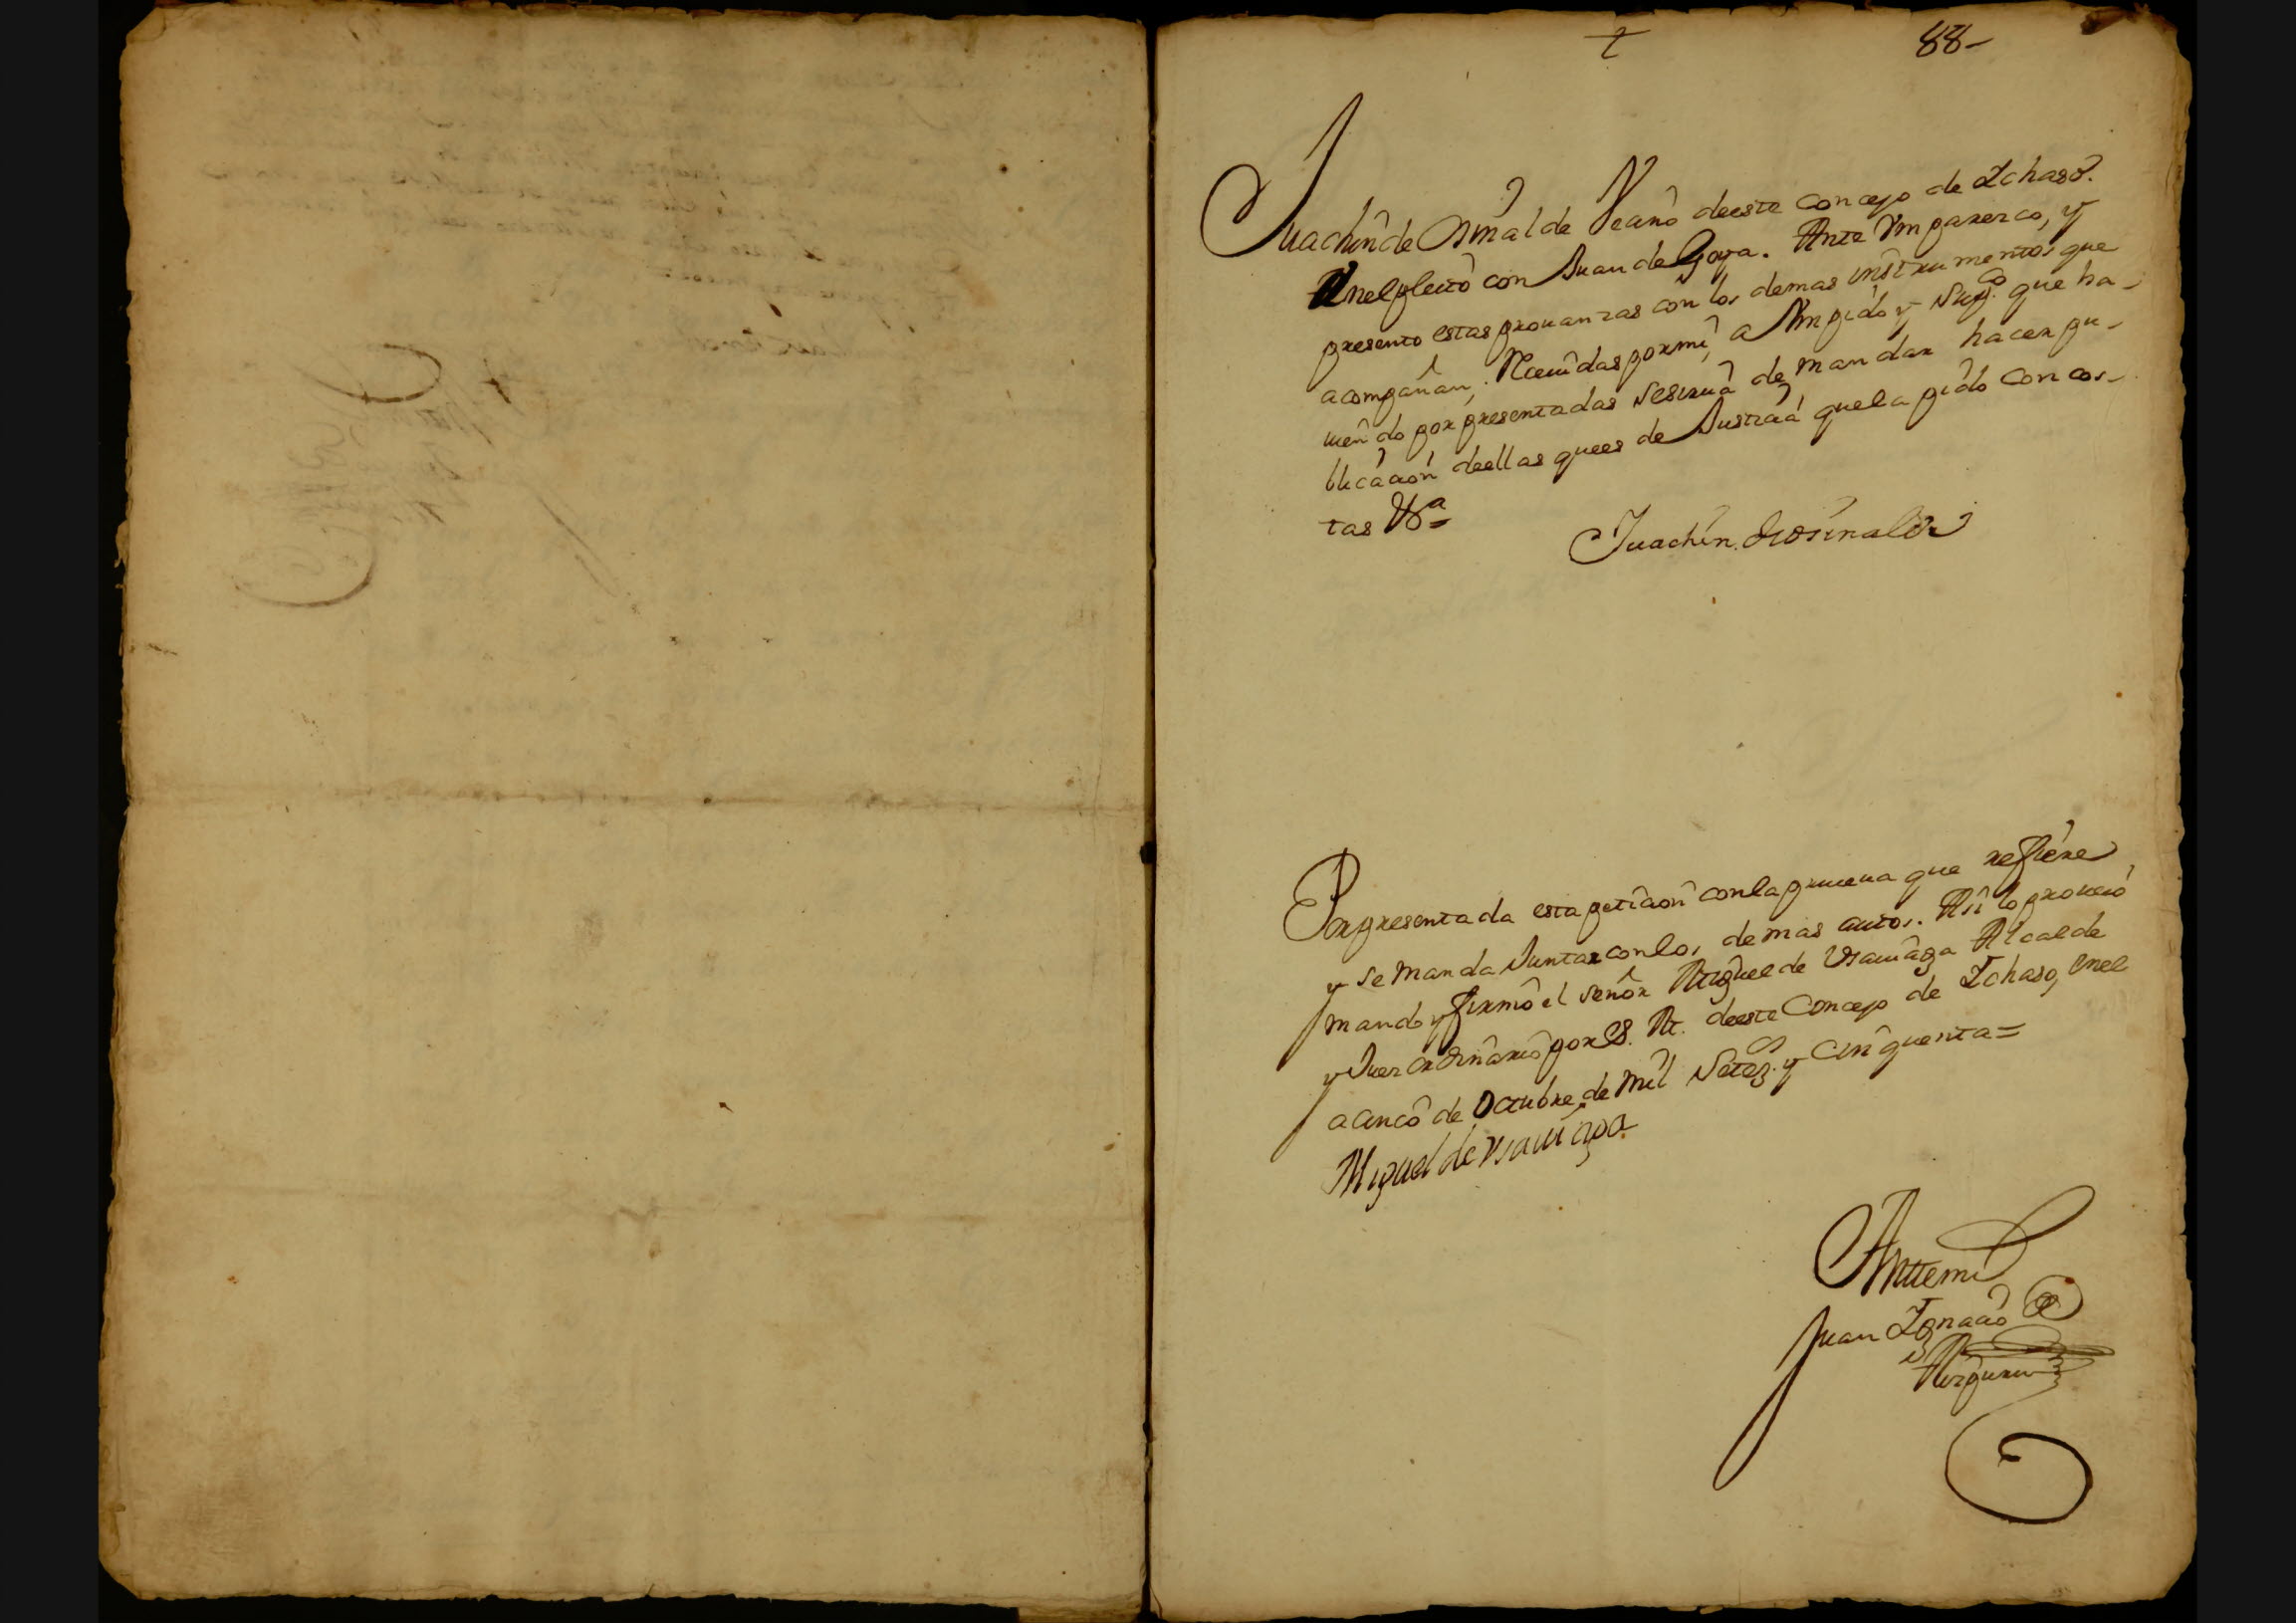 88-
Juachin de Osinalde Veano deeste concejo de Ichaso.
Enel pleito con Juan de Goya. Ante Vm parezco, y
presento estas prouanzas con los demas instrumentos que
acompañan, Receuidas por mi, a Vm pido y Supco que ha-
uiendo por presentadas Sesirua de mandar hacer pu-
blicacion deellas quees de Justicia quela pido con cos-
tas Va=
Juachin de osinalde
Por presentada esta peticion conla prueua que refiere
y se manda Juntar conlos demas autos. Asi lo proueio
mando y firmo el señor Miguel de Vsauiaga Alcalde
y Juez ordinario por S. M. deeste Concejo de Ichaso, enel
a cinco de Octubre de mil Setezos y cinquenta=
Miguel de Vsauiaga
Anttemi
Juan Ignacio